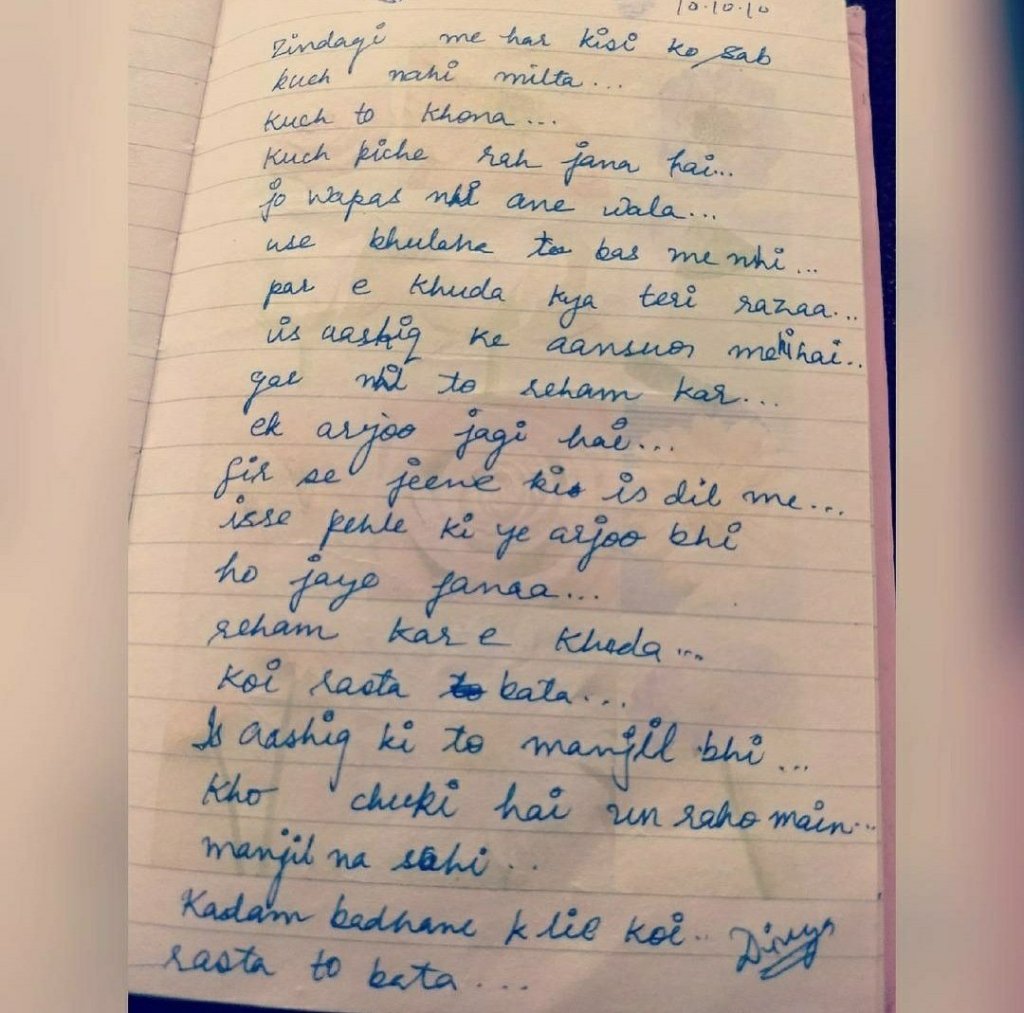 10.10.10
zindagi me har kisi ko sab
kuch nahi milta...
kuch to khona...
kuch piche rah jana hai...
jo wapas nhi ane wala...
use bhulane to bas me nhi...
par e khuda kya teri razaa...
is aashiq ke aansuon me hi hai..
gar nhi to reham kar...
ek arjoo jagi hai...
fir se jeene ki is dil me...
isse pehle ki ye arjoo bhi
ho jaye fanaa...
reham kar e khuda...
koi rasta bata...
Is aashiq ki to manjil bhi...
kho chuki hai un raho main...
manjil na sahi...
Kadam badhane k lie koi..
rasta to bata...
Divya